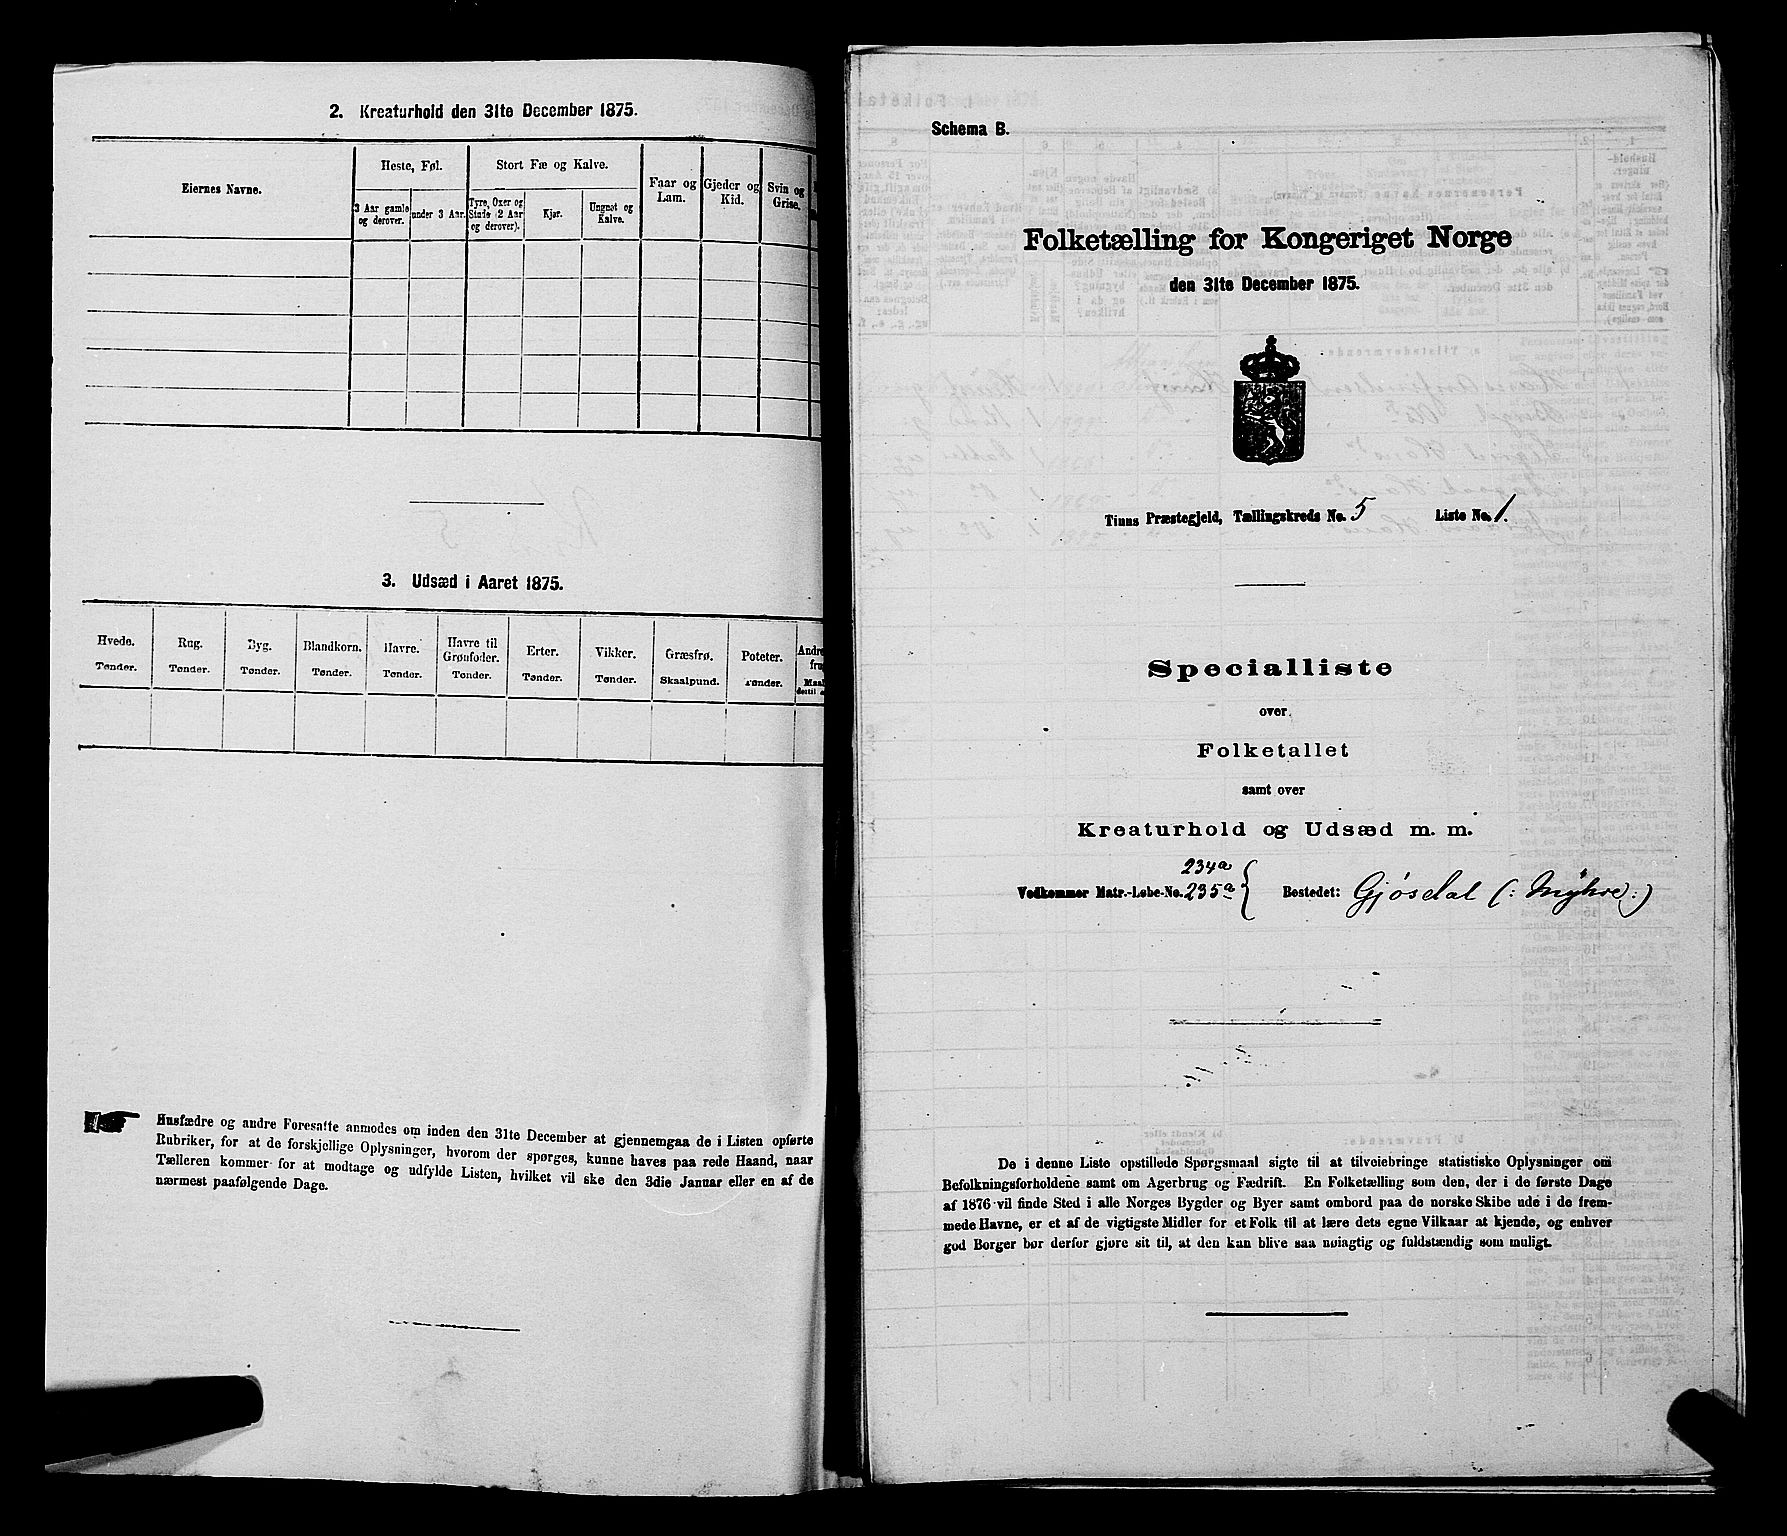 2. Kreaturhold den 31te December 1875.
Eiernes Navne.
Heste, Føl.
Stort Fæ og Kalve.
Faar og Lam.
Gjeder og Kid.
Svin og Grise.
3 Aar gamle og derover.
under 3 Aar.
Tyre, Oxer og Stude (2 Aar og derover).
Kjør.
Ungnøt og Kalve.
3. Udsæd i Aaret 1875.
Hvede. Rug. Byg. Blandkorn. Havre. Havre til Grønfoder. Erter. Vikker. Græsfrø. Poteter. Andre
Tønder. Tønder. Tønder. Tønder. Tønder. Tønder. Tønder. Tønder. Skaalpund. Tønder.
Husfædre og andre Foresatte anmodes om inden den 31te December at gjennemgaa de i Listen opførte
Rubriker, for at de forskjellige Oplysninger, hvorom der spørges, kunne haves paa rede Haand, naar
Tælleren kommer for at modtage og udfylde Listen, hvilket vil ske den 3die Januar eller en af de
nærmest paafølgende Dage.
Schema B.
Folketælling for Kongeriget Norge
den 31te December 1875.
Tinns Præstegjeld, Tællingskreds No. 5 Liste No. 1.
Specialliste
over
Folketallet
samt over
Kreaturhold og Udsæd m. m.
234a
Vedkommer Matr.-Løbe-No. 235a } Bestedet: Gjøsdal (: Myhre :)
De i denne Liste opstillede Spørgsmaal sigte til at tilveiebringe statistiske Oplysninger om
Befolkningsforholdene samt om Agerbrug og Fædrift. En Folketælling som den, der i de første Dage
af 1876 vil finde Sted i alle Norges Bygder og Byer samt ombord paa de norske Skibe ude i de frem-
mede Havne, er et af de vigtigste Midler for et Folk til at lære dets egne Vilkaar at kjende, og enhver
god Borger bør derfor gjøre sit til, at den kan blive saa nøiagtig og fuldstændig som muligt.